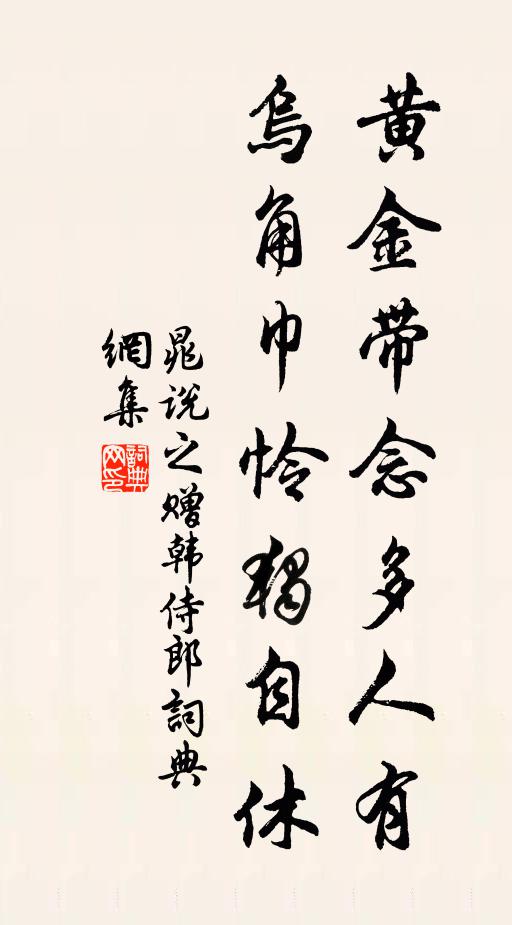 黄金带念多人有
烏角巾怜獨自休
晁说之赠韩侍郎詞典
網集
詞典
网印